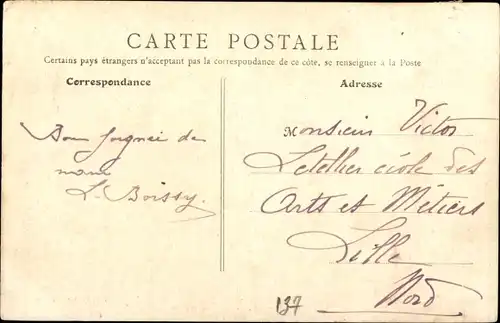 CARTE POSTALE
Certains pays étrangers n'acceptant pas la correspondance de ce côté, se renseigner à la Poste
Correspondance
Adresse
Bon de
L. Boissy
Monsieur Victor
Letellier école des
Arts et Métiers
Lille
Nord
137